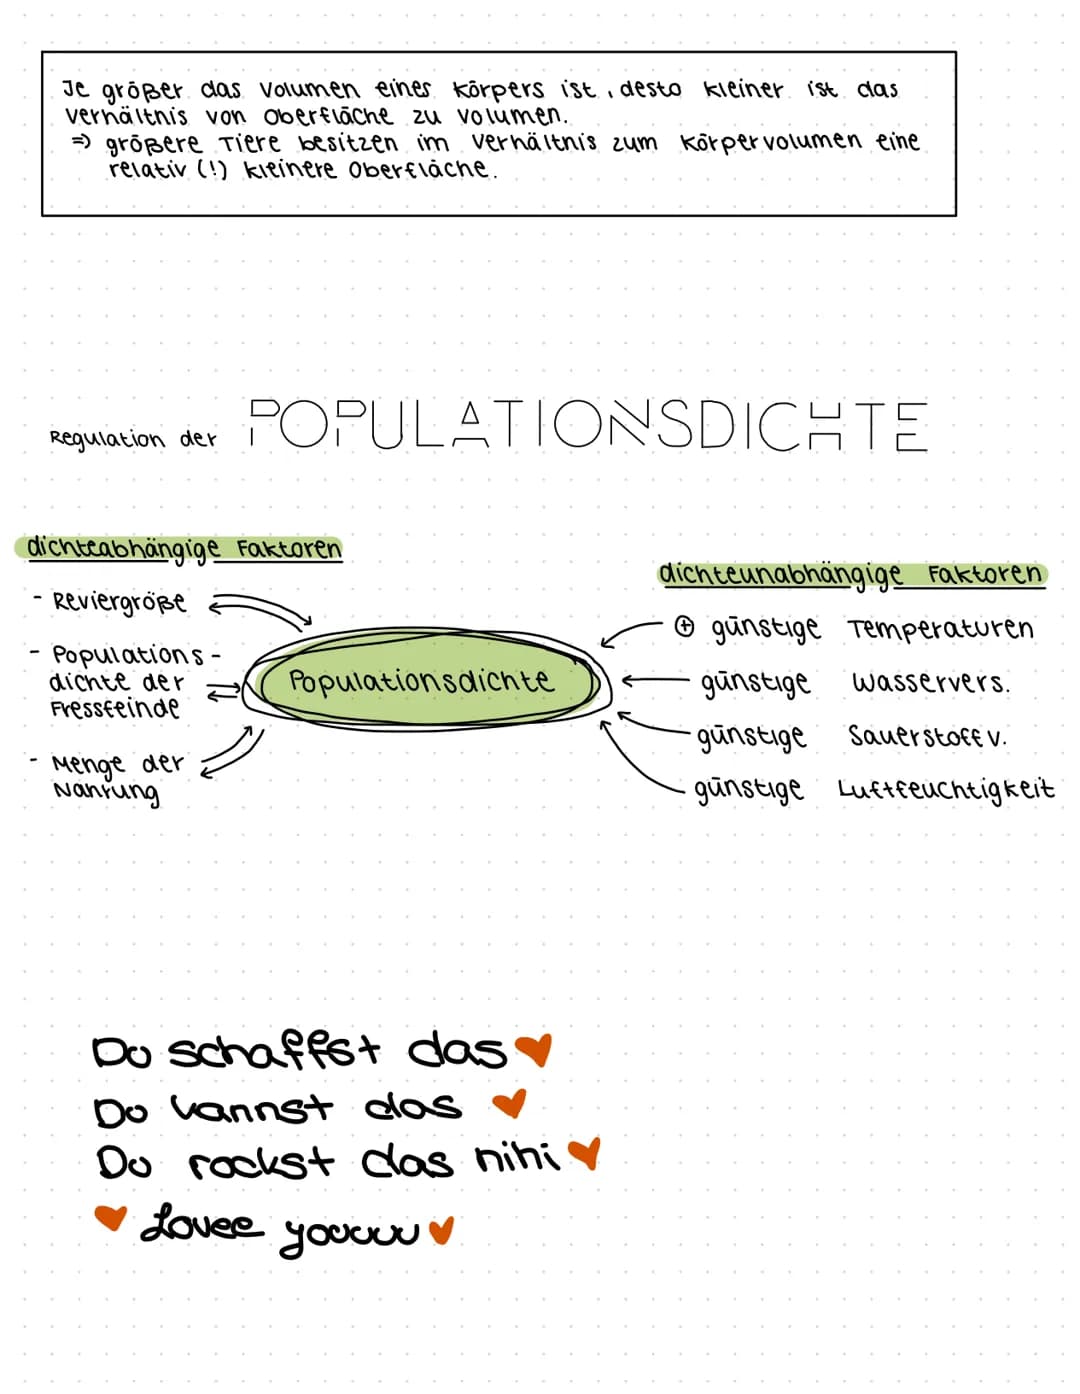 Je größer das Volumen eines Körpers ist, desto kleiner ist das
Verhältnis von Oberfläche zu Volumen.
=> größere Tiere besitzen im Verhältnis zum Körpervolumen eine
relativ (!) kleinere Oberfläche.
Regulation der POPULATIONSDICHTE
dichteabhängige Faktoren
- Reviergröße
- Populations-
dichte der
Fressfeinde
- Menge der
Nahrung
Populationsdichte
dichteunabhängige Faktoren
⊕ günstige Temperaturen
günstige Wasservers.
günstige Sauerstoffv.
günstige Luftfeuchtigkeit
Du schaffst das
Du kannst das
Du rockst das hihi
Lovee youuuu